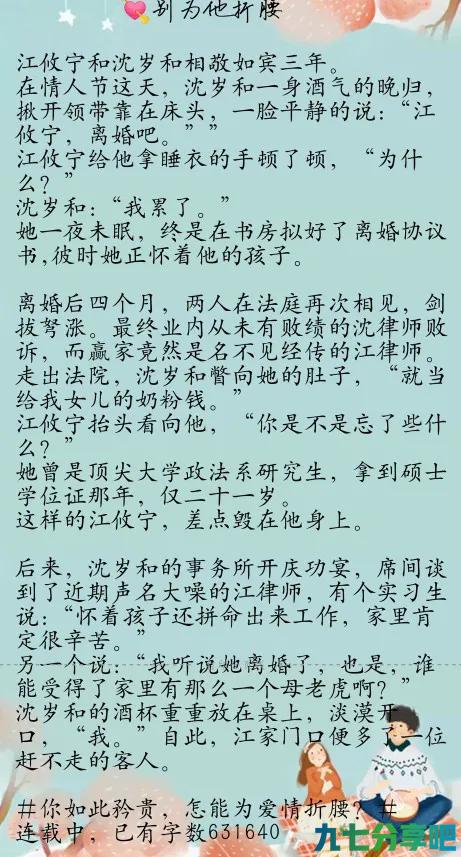 别为他折腰
江攸宁和沈岁和相敬如宾三年。
在情人节这天，沈岁和一身酒气的晚归，
揪开领带靠在床头，一脸平静的说：“江
攸宁，离婚吧。””
江攸宁给他拿睡衣的手顿了顿，“为什
么？”
沈岁和：“我累了。”
她一夜未眠，终是在书房拟好了离婚协议
书,彼时她正怀着他的孩子。
离婚后四个月，两人在法庭再次相见，剑
拔弩涨。最终业内从未有败绩的沈律师败
诉，而赢家竟然是名不见经传的江律师。
走出法院，沈岁和瞥向她的肚子，“就当
给我女儿的奶粉钱。”
江攸宁抬头看向他，“你是不是忘了些什
么？”
她曾是顶尖大学政法系研究生，拿到硕士
学位证那年，仅二十一岁。
这样的江攸宁，差点毁在他身上。
后来，沈岁和的事务所开庆功宴，席间谈
到了近期声名大噪的江律师，有个实习生
说：“怀着孩子还拼命出来工作，家里肯
定很辛苦。”
另一个说：“我听说她离婚了，也是，谁
能受得了家里有那么一个母老虎啊？”
沈岁和的酒杯重重放在桌上，淡漠开
口，“我。”自此，江家门口便多了一位
赶不走的客人。
＃你如此矜贵，怎能为爱情折腰？＃
连载中，已有字数631640
九七分享吧